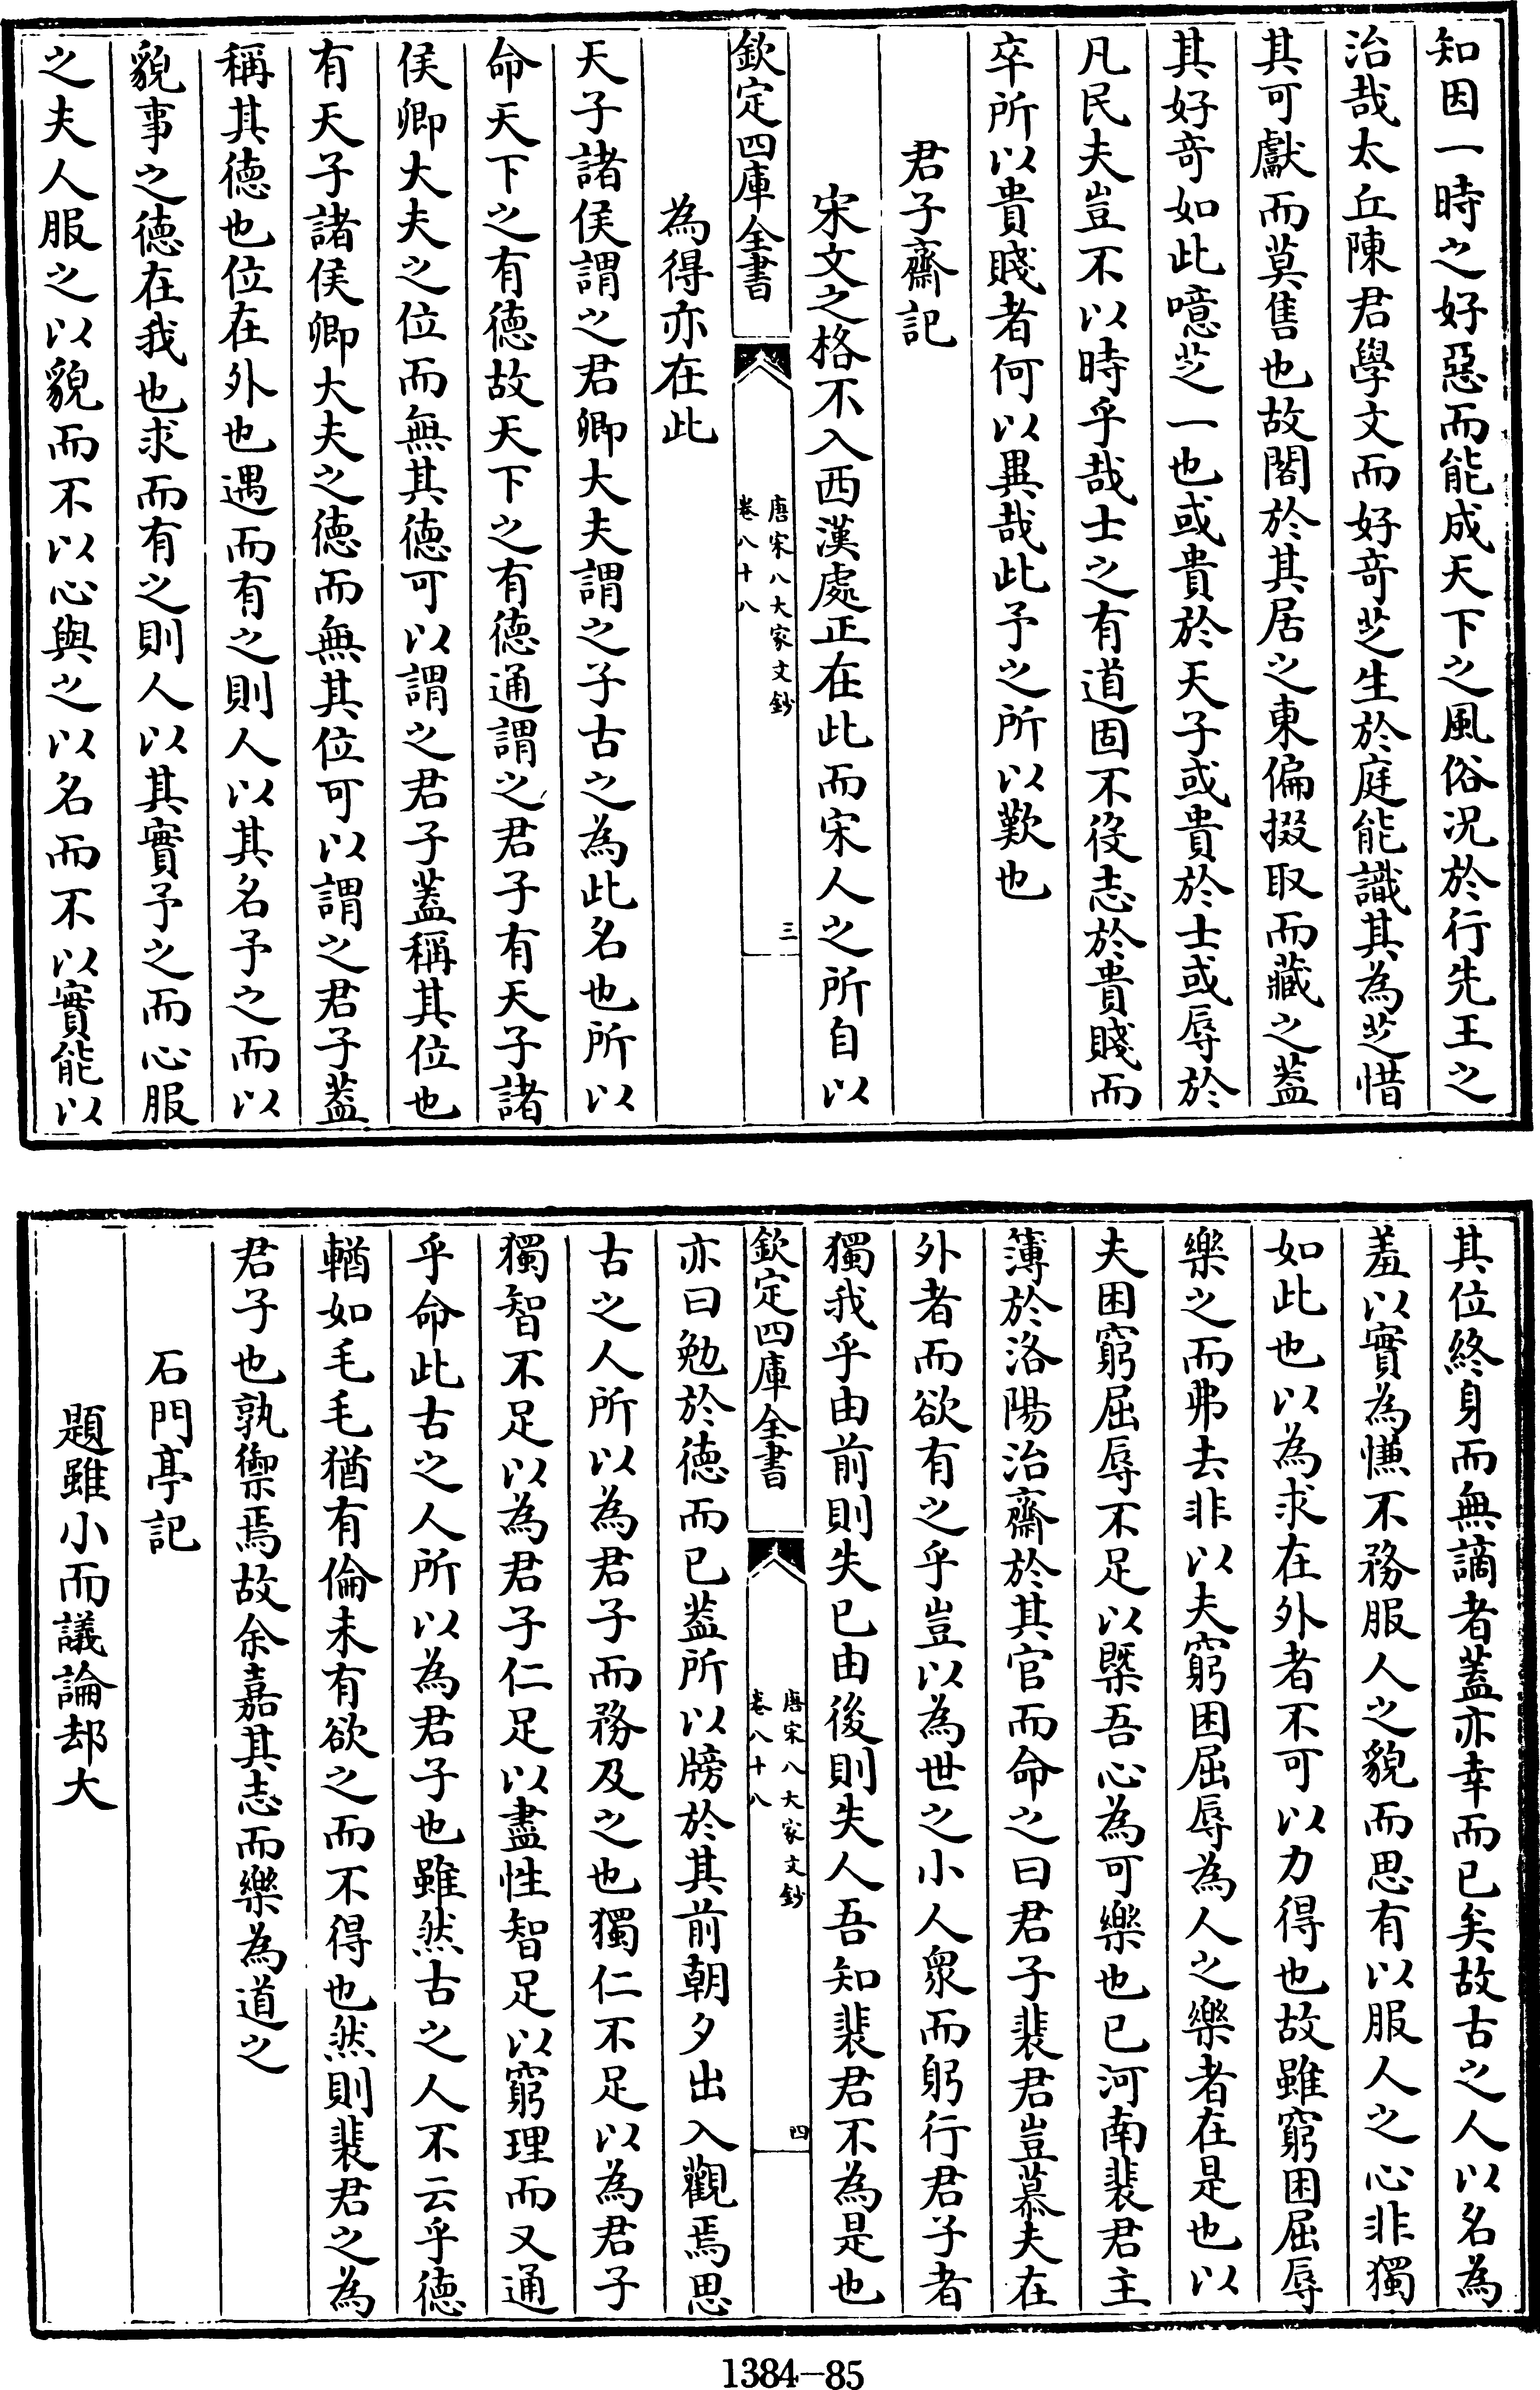 知因一時之好惡而能成天下之風俗况於行先王之
治哉太丘陳君學文而好竒芝生於庭能識其為芝惜
其可獻而莫售也故閣於其居之東偏掇取而藏之葢
其好竒如此噫芝一也或貴於天子或貴於士或辱於
凡民夫豈不以時乎哉士之有道固不役志於貴賤而
卒所以貴賤者何以異哉此予之所以歎也
君子齋記
宋文之格不入西漢處正在此而宋人之所自以
欽定四庫全書
唐宋八大家文鈔
卷八十八
三
為得亦在此
天子諸侯謂之君卿大夫謂之子古之為此名也所以
命天下之有德故天下之有德通謂之君子有天子諸
侯卿大夫之位而無其德可以謂之君子蓋稱其位也
有天子諸侯卿大夫之德而無其位可以謂之君子葢
稱其德也位在外也遇而有之則人以其名予之而以
貌事之德在我也求而有之則人以其實予之而心服
之夫人服之以貌而不以心與之以名而不以實能以
其位終身而無謫者蓋亦幸而已矣故古之人以名為
羞以實為慊不務服人之貌而思有以服人之心非獨
如此也以為求在外者不可以力得也故雖窮困屈辱
樂之而弗去非以夫窮困屈辱為人之樂者在是也以
夫困窮屈辱不足以槩吾心為可樂也已河南裴君主
簿於洛陽治齋於其官而命之曰君子裴君豈慕夫在
外者而欲有之乎豈以為世之小人衆而躬行君子者
獨我乎由前則失已由後則失人吾知裴君不為是也
欽定四庫全書
唐宋八大家文鈔
卷八十八
四
亦曰勉於德而已葢所以牓於其前朝夕出入觀焉思
古之人所以為君子而務及之也獨仁不足以為君子
獨智不足以為君子仁足以盡性智足以窮理而又通
乎命此古之人所以為君子也雖然古之人不云乎德
輶如毛毛猶有倫未有欲之而不得也然則裴君之為
君子也孰禦焉故余嘉其志而樂為道之
石門亭記
題雖小而議論却大
1384-85